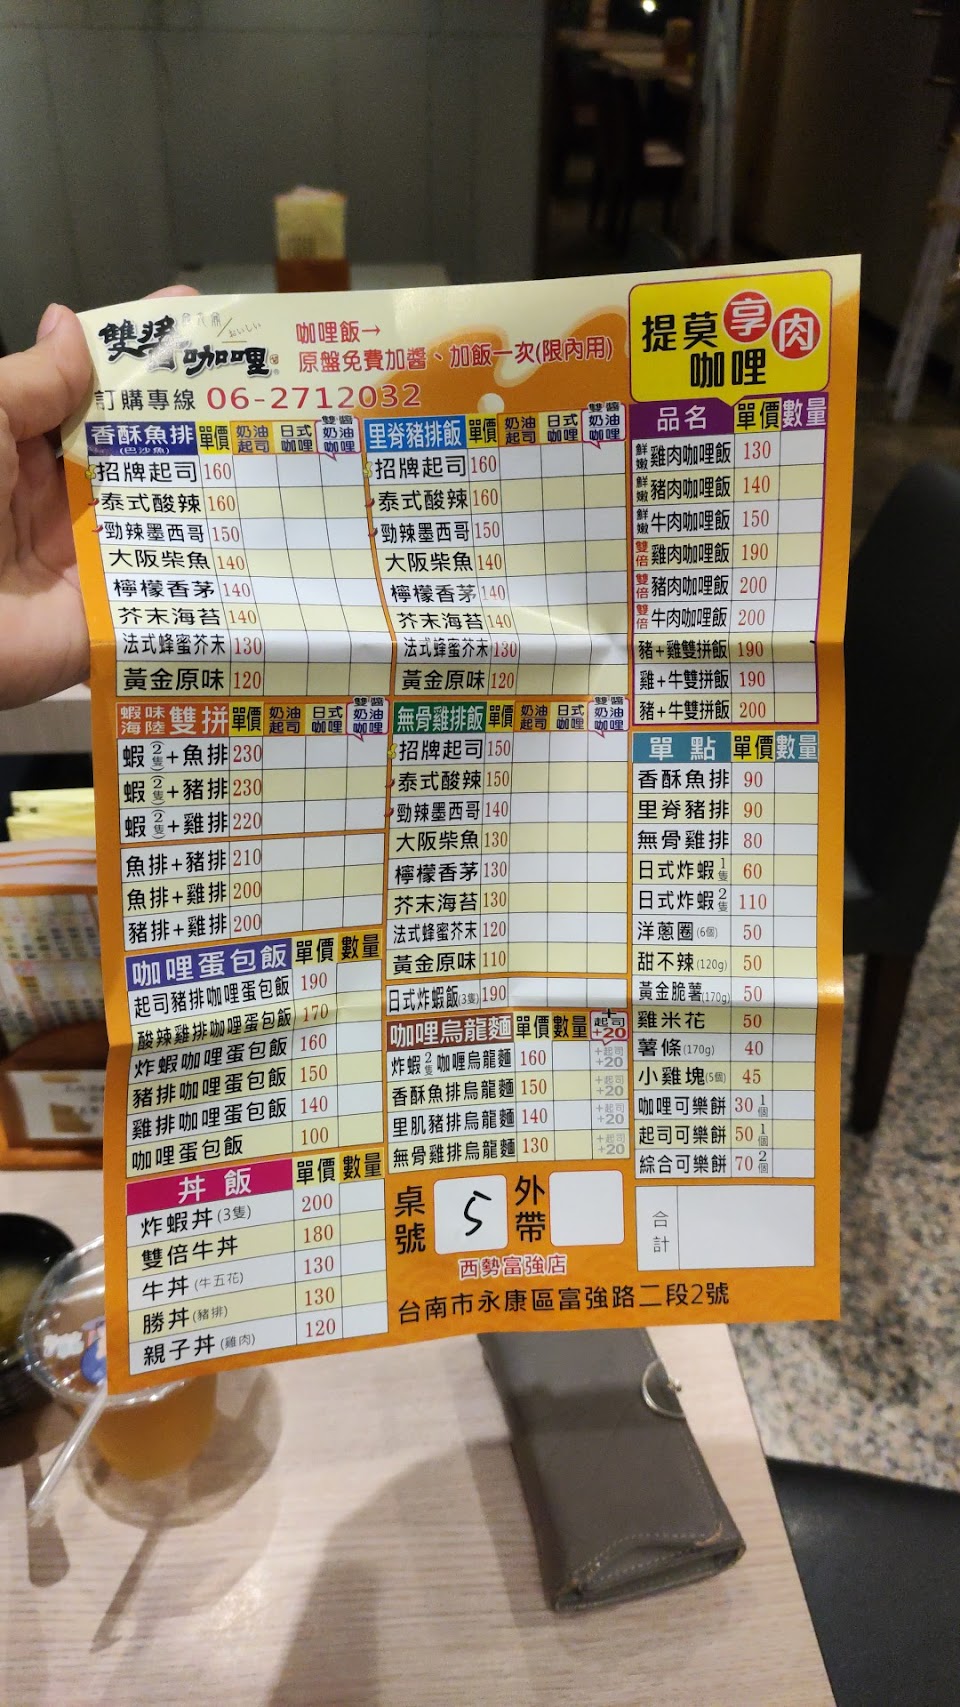 雙醬咖哩
おいしい
咖哩飯→
原盤免費加醬、加飯一次(限內用)
訂購專線 06-2712032
香酥魚排 (巴沙魚) 單價 奶油起司 日式咖哩 雙醬奶油咖哩
招牌起司 160
泰式酸辣 160
勁辣墨西哥 150
大阪柴魚 140
檸檬香茅 140
芥末海苔 140
法式蜂蜜芥末 130
黃金原味 120
蝦味海陸 雙拼 單價 奶油起司 日式咖哩 雙醬奶油咖哩
蝦(2隻)+魚排 230
蝦(2隻)+豬排 230
蝦(2隻)+雞排 220
魚排+豬排 210
魚排+雞排 200
豬排+雞排 200
咖哩蛋包飯 單價 數量
起司豬排咖哩蛋包飯 190
酸辣雞排咖哩蛋包飯 170
炸蝦咖哩蛋包飯 160
豬排咖哩蛋包飯 150
雞排咖哩蛋包飯 140
咖哩蛋包飯 100
丼飯 單價 數量
炸蝦丼(3隻) 200
雙倍牛丼 180
牛丼(牛五花) 130
勝丼(豬排) 130
親子丼(雞肉) 120
里脊豬排飯 單價 奶油起司 日式咖哩 雙醬奶油咖哩
招牌起司 160
泰式酸辣 160
勁辣墨西哥 150
大阪柴魚 140
檸檬香茅 140
芥末海苔 140
法式蜂蜜芥末 130
黃金原味 120
無骨雞排飯 單價 奶油起司 日式咖哩 雙醬奶油咖哩
招牌起司 150
泰式酸辣 150
勁辣墨西哥 140
大阪柴魚 130
檸檬香茅 130
芥末海苔 130
法式蜂蜜芥末 120
黃金原味 110
日式炸蝦飯(3隻) 190
咖哩烏龍麵 單價 數量 +起司+20
炸蝦2隻咖哩烏龍麵 160 +起司+20
香酥魚排烏龍麵 150 +起司+20
里肌豬排烏龍麵 140 +起司+20
無骨雞排烏龍麵 130 +起司+20
桌號 5 外帶
西勢富強店
台南市永康區富強路二段2號
提莫享肉咖哩
品名 單價 數量
鮮嫩雞肉咖哩飯 130
鮮嫩豬肉咖哩飯 140
鮮嫩牛肉咖哩飯 150
雙倍雞肉咖哩飯 190
雙倍豬肉咖哩飯 200
雙倍牛肉咖哩飯 200
豬+雞雙拼飯 190
雞+牛雙拼飯 190
豬+牛雙拼飯 200
單點 單價 數量
香酥魚排 90
里脊豬排 90
無骨雞排 80
日式炸蝦1隻 60
日式炸蝦2隻 110
洋蔥圈(6個) 50
甜不辣(120g) 50
黃金脆薯(170g) 50
雞米花 50
薯條(170g) 40
小雞塊(5個) 45
咖哩可樂餅 30 1個
起司可樂餅 50 1個
綜合可樂餅 70 2個
合計